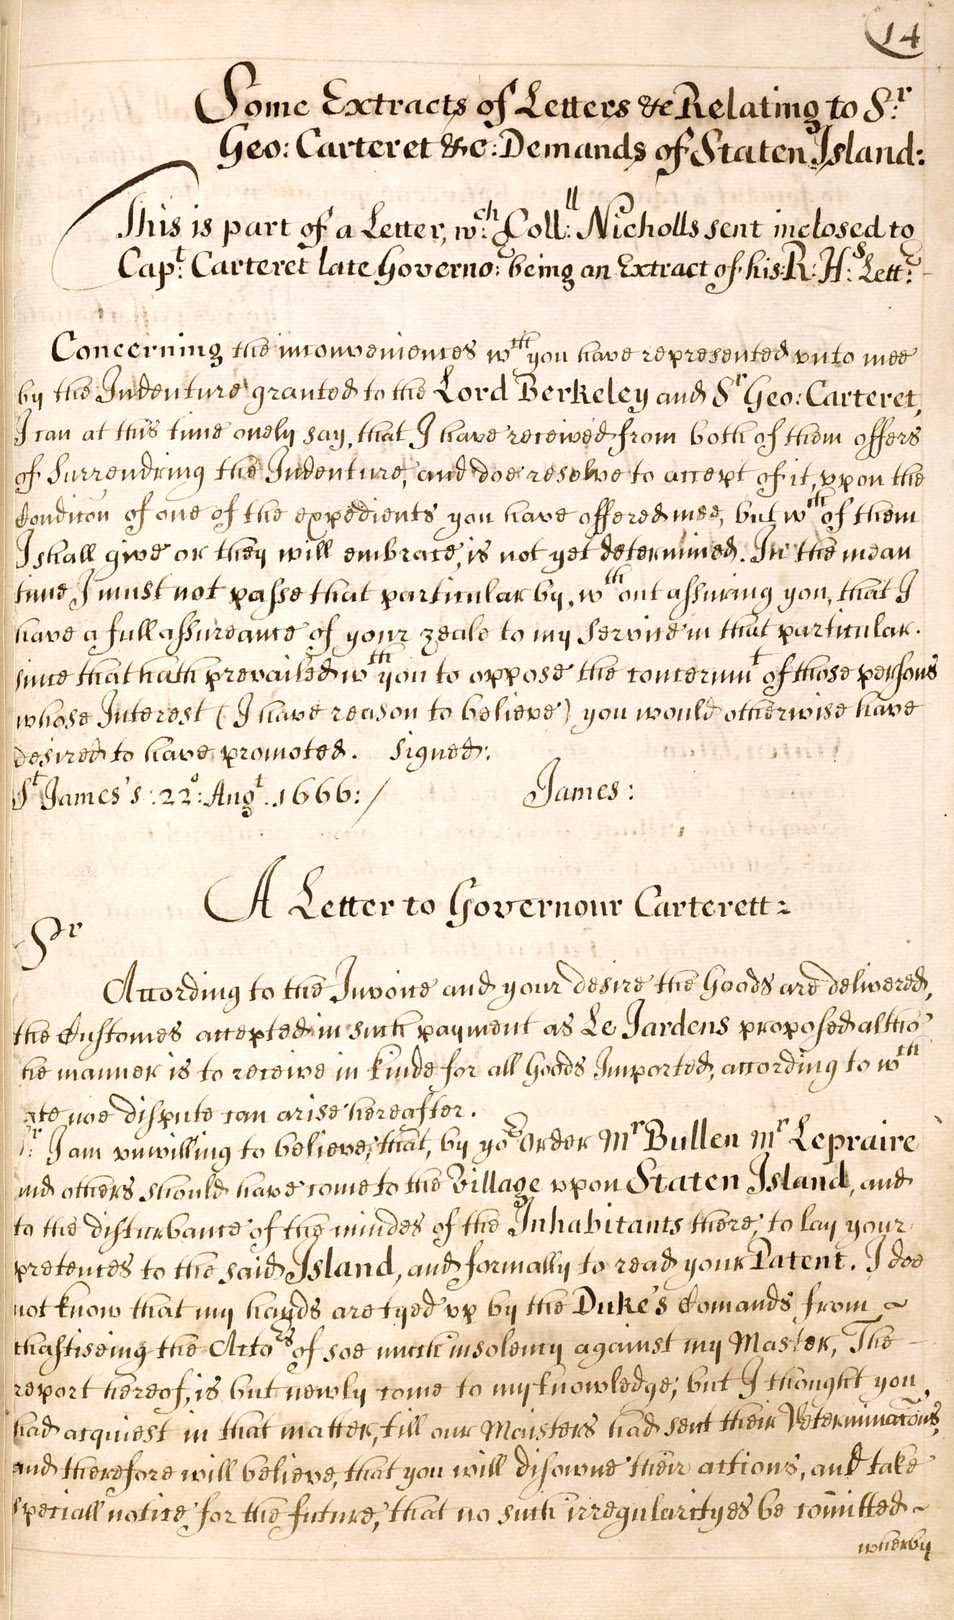 14
Some Extracts of Letters &c Relating to Sr
Geo: Carteret &c: Demands of Staten Island:
This is part of a Letter, wch Coll: Nicholls sent inclosed to
Capt Carteret late Governor: being an Extract of his R: Hs Lettr:
Concerning the inconveniences wth you have represented vnto mee
by the Indenture granted to the Lord Berkeley and Sr Geo: Carteret,
I can at this time onely say, that I have received from both of them offers
of Surrendring the Indenture, and doe resolve to accept of it, vpon the
Condicon of one of the expedients you have offered mee, but wth of them
I shall give or they will embrace, is not yet determined. In the mean
time, I must not passe that particular by, wthout assuring you, that I
have a full assureance of your zeale to my service in that particular.
since that hath prevailed wth you to oppose the concernmt of those persons
whose Interest (I have reason to believe) you would otherwise have
desired to have promoted. Signed:
St James's: 22o: Augt. 1666:/ James:
A Letter to Governour Carterett:
Sr
According to the Invoice and your desire the Goods are delivered,
the Customes accepted in such payment as Le Jardens proposed altho'
he manner is to receive in kinde for all Goods Imported, according to wth
ate noe dispute can arise hereafter.
Sr: I am vnwilling to believe, that, by yor Order Mr Bullen Mr Lepraire
and others should have come to the Village vpon Staten Island, and
to the disturbance of the mindes of the Inhabitants there, to lay your
pretences to the said Island, and formally to read your Patent. I doe
not know that my hands are tyed vp by the Duke's Comands from ~
chastiseing the Actors of soe much insolency against my Master, The -
report hereof, is but newly come to my knowledge, but I thought you
had acquiest in that matter, till our Masters had sent their Determinacons,
and therefore will believe, that you will disowne their actions, and take
speciall notice for the future, that no such irregularityes be comitted ~
wherby